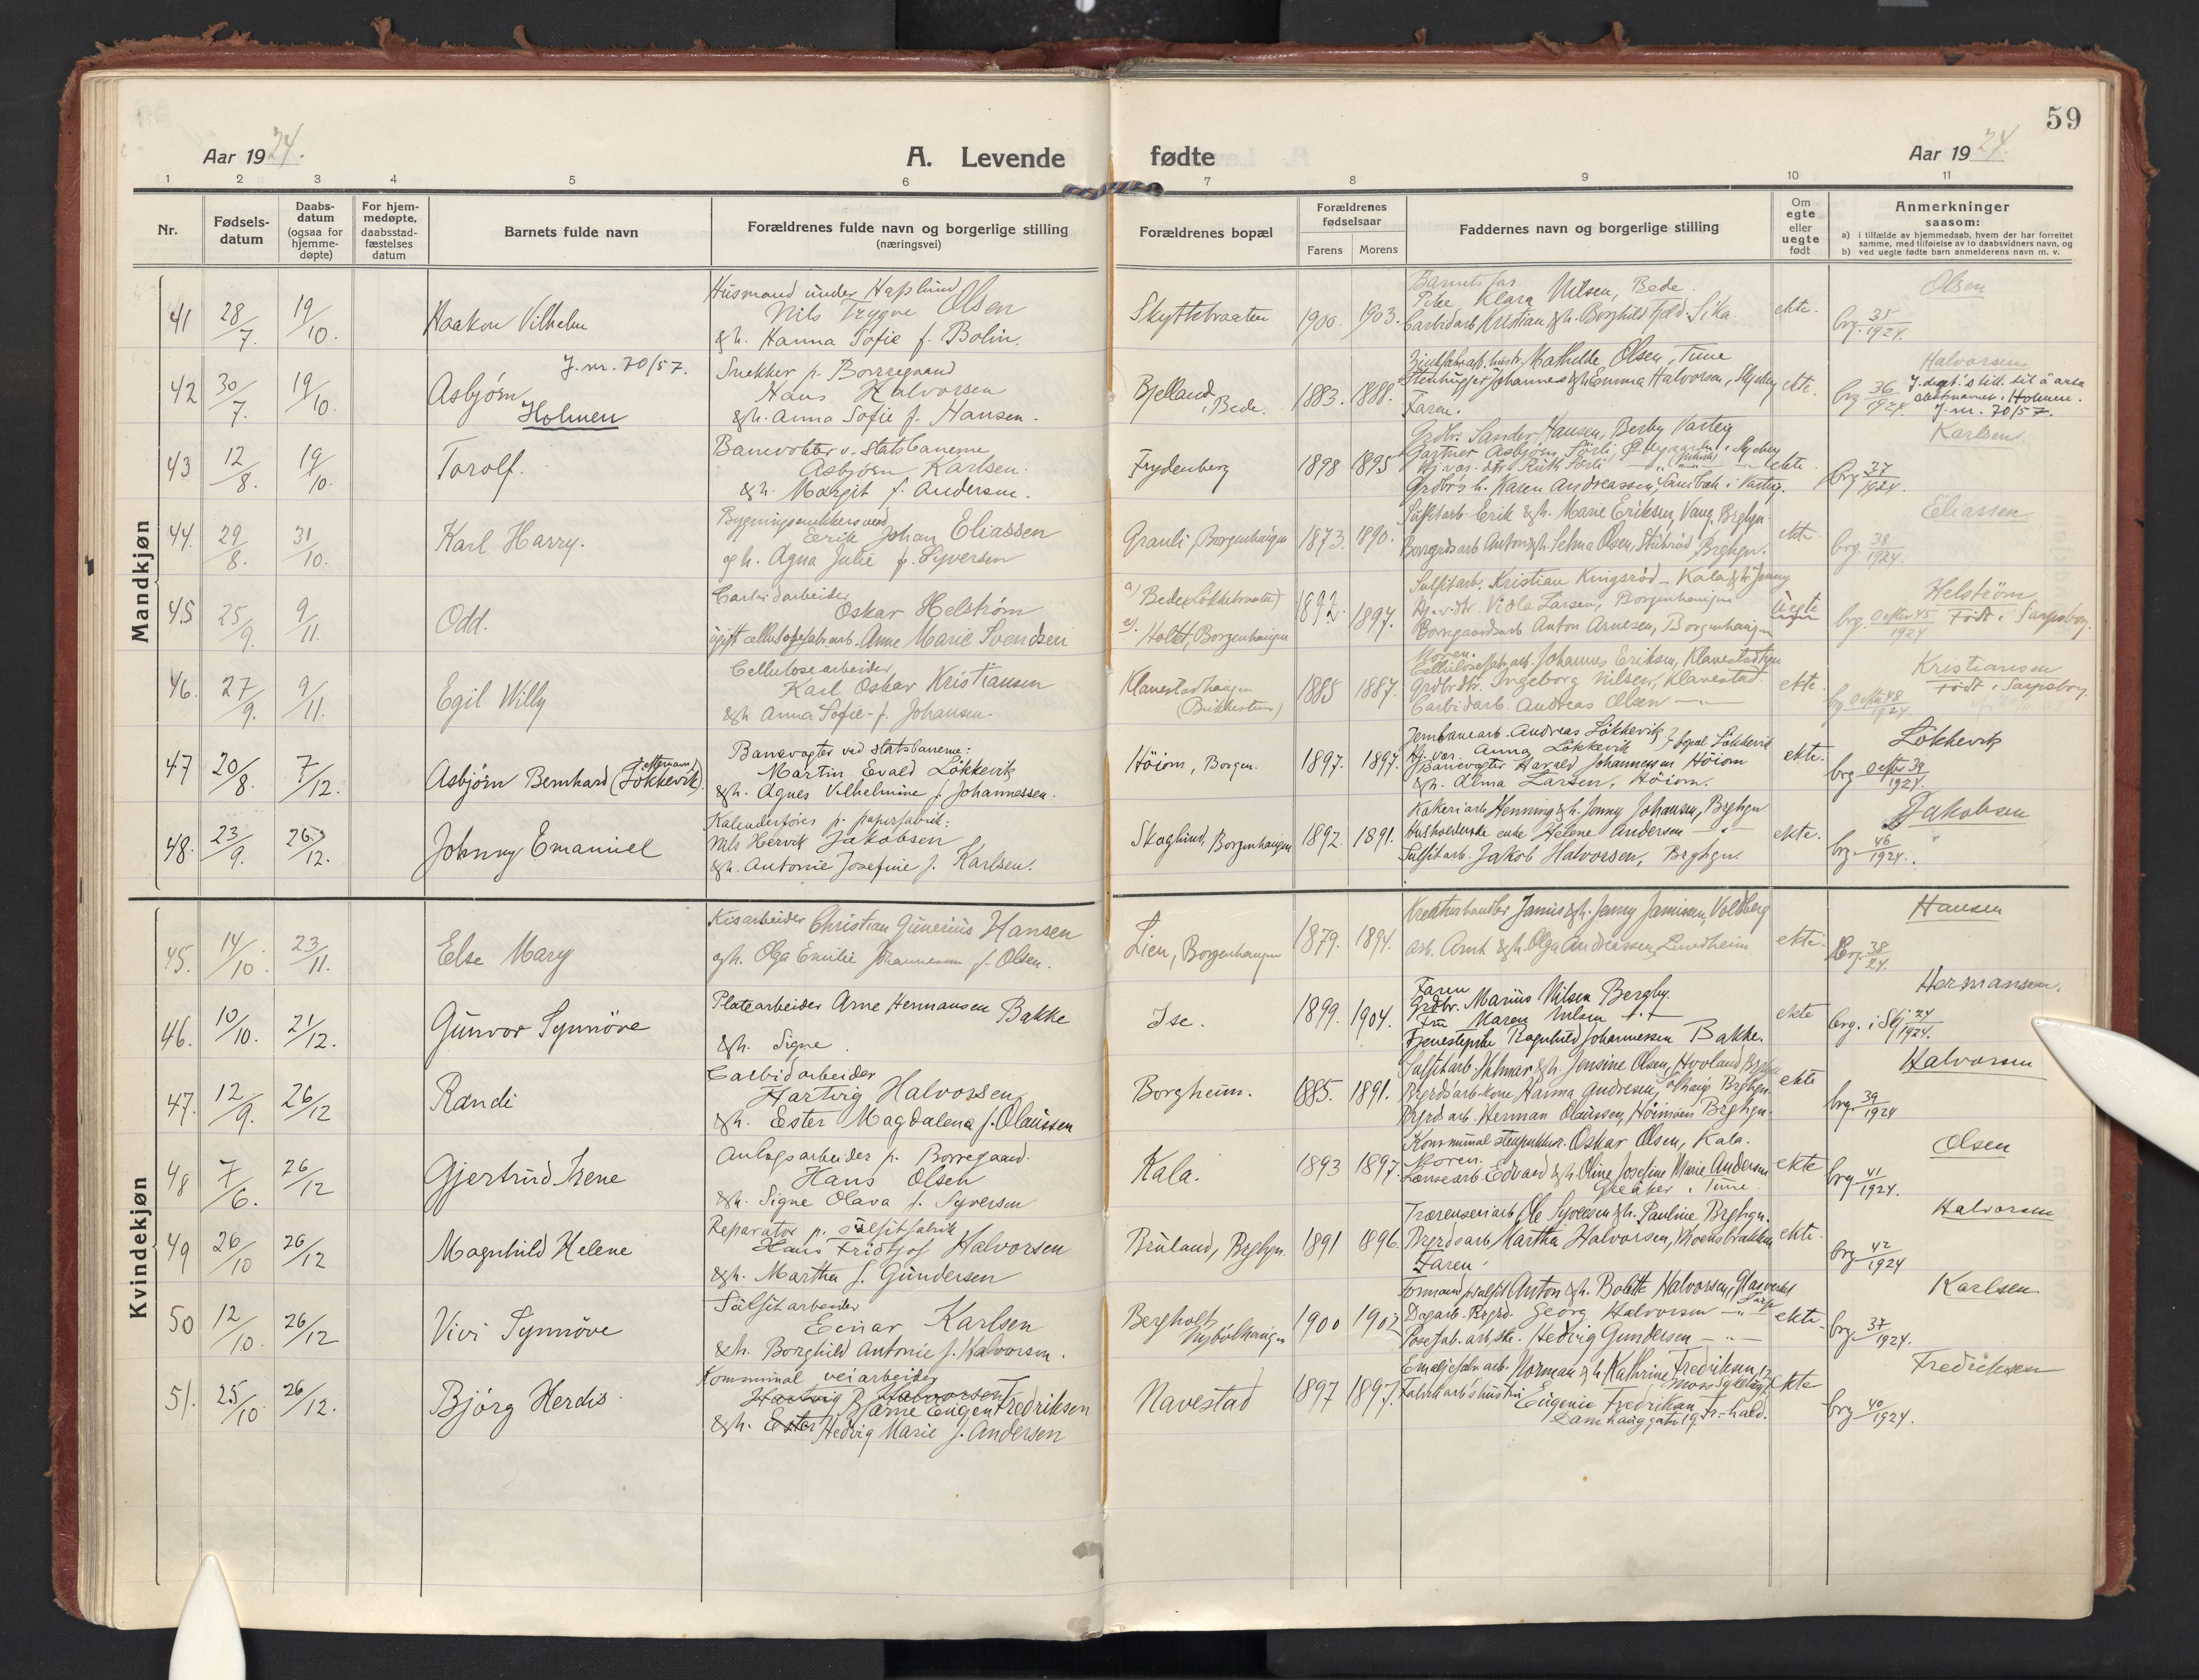 59
Aar 1924.
A. Levende
fødte
Aar 1924.
1 2 3 4 5 6
7 8 9 10 11
Nr.
Fødsels-
datum
Daabs-
datum
(ogsaa for
hjemme-
døpte)
For hjem-
medøpte,
daabsstad-
fæstelses
datum
Barnets fulde navn
Forældrenes fulde navn og borgerlige stilling
(næringsvei)
Forældrenes bopæl
Forældrenes
fødselsaar
Farens
Morens
Faddernes navn og borgerlige stilling
Om
egte
eller
uegte
født
Anmerkninger
saasom:
a) i tilfælde av hjemmedaab, hvem der har forrettet
samme, med tilføielse av to daabsvidners navn, og
b) ved uegte fødte barn anmelderens navn m. v.
Mandkjøn
41 28/7. 19/10. Haakon Vilhelm
Husmand under Hafslund
Nils Trygve Olsen
& h. Hanna Sofie f. Bolin.
Skyttebraaten 1900. 1903.
Barnets far.
Pike Klara Nilsen, Bede.
Carbidarb. Kristian & h. Borghild
ekte.
Olsen
brg. 35/1924.
42 30/7. 19/10. Asbjørn
J.nr. 70/57.
Holmen
Snekker p. Borregaard
Hans Halvorsen
& h. Anna Sofie f. Hansen.
Bjelland, Bede. 1883. 1888.
Mathilde Olsen, Tune
Stenhugger Johannes & h. Emma Halvorsen, Skjeberg
Faren.
ekte.
Halvorsen
brg 36/1924
J. dept's till. til å anta
slektsnavnet: Holmen.
J.nr. 70/57.
43 12/8. 19/10. Torolf.
Banevokter v. Statsbanerne
Asbjørn Karlsen.
& h. Margit f. Andersen.
Frydenberg 1898 1895
Grdbr. Sander Hansen, Berby Varteig
Gartner Asbjørn Sørli,
Ruth Sørli
Grdbr's h. Karen Andreassen, i Varteig.
ekte
Karlsen
Brg 27/1924.
44. 29/8. 31/10. Karl Harry.
Bygningssnekkersvend
Erik Johan Eliassen
og h. Agna Julie f. Syversen
Granli, Borgenhaugen 1873. 1890.
Sulfitarb. Erik & h. Marie Eriksen, Vang, Brghgn.
Borrgrdsarb Anton & h. Selma Olsen, Stubrød Brghgn.
ekte.
Eliassen
brg. 38/1924.
45 25/9. 9/11. Odd.
Carbidarbeider
Oskar Helstrøm
ugift cellulosefabr.arb. Anne Marie Svendsen
a) Bede (Løkkebraaten)
Holtet, Borgenhaugen
1892. 1897.
Sulfitarb. Kristian Kingsrød - Kala & h. Jenny
Viola Larsen, Borgenhaugen
Borregaardsarb Anton Arnesen, Borgenhaugen
Moren.
Uegte
Helstrøm
brg. Oester 45/1924 Født i Sarpsborg.
46. 27/9. 9/11. Egil Willy
Cellulosearbeider
Karl Oskar Kristiansen
& h Anna Sofie f. Johansen.
Klavestadhaugen
1885 1887.
Cellulosefabr.arb. Johannes Eriksen, Klavestadhgn
Grdbrdtr. Ingeborg Nilsen, Klavestad.
Carbidarb. Andreas Olsen
ekte.
Kristiansen
Født i Sarpsborg.
brg Oester 48/1924
47 20/8. 7/12. Asbjørn Bernhard (Løkkevik) efternavn
Banevogter ved statsbanerne:
Martin Evald Løkkevik
& h. Agnes Vilhelmine f. Johannessen.
Höiom, Borgen. 1897. 1897.
Jernbanearb. Andreas Løkkevik
Anna Løkkevik
Banevogter Harald Johannessen Höiom
& h. Alma Larsen, Höiom.
ekte.
Løkkevik
brg Oester 39/1924.
48. 23/9. 26/12. Johnny Emanuel
Kalenderfører p. papirfabrik:
Nils Hervik Jakobsen
& h. Antonie Josefine f. Karlsen.
Skoglund, Borgenhaugen 1892. 1891.
Henning & h. Jenny Johansen, Brghgn
Husholderske enke Helene Andersen
Sulfitarb. Jakob Halvorsen, Brghgn.
ekte.
Jakobsen
brg. 46/1924.
Kvindekjøn
45. 14/10. 23/11. Else Mary
Kisarbeider Christian Gunerius Hansen
og h. Olga Emilie Johannessen f. Olsen.
Lien, Borgenhaugen 1879. 1894.
Kreaturhandler Janus & h. Jenny Jamissen, Voldberg
arb. Arnt & h. Olga Andreassen, Lundheim
ekte.
Hansen
Brg. 38/24.
46. 10/10. 21/12. Gunvor Synnöve
Platearbeider Arne Hermansen Bakke
& h. Signe.
Ise. 1899. 1904.
Faren
Grdbr. Marius Nilsen Bergby.
Fru Maren Nilsen
Tjenestepike Ragnhild Johannessen Bakke.
ekte
Hermansen.
brg. i Skj 24/1924.
47. 12/9. 26/12 Randi
Carbidarbeider
Hartvig Halvorsen
& h. Ester Magdalena f. Olaussen
Borgheim. 1885. 1891.
Sulfitarb. Hilmar & h. Jensine Olsen, Hovland Brghgn
Brgrdsarb-kone Hanna Andresen, Brghgn.
Brgrdarb. Herman Olaussen, Brghgn.
ekte
Halvorsen
brg. 39/1924
48 7/6. 26/12 Gjertrud Irene
Anlægsarbeider p. Borregaard.
Hans Olsen
& h. Signe Olava f. Syversen
Kala. 1893 1897.
Kommunal Oskar Olsen, Kala.
Moren.
Lænsearb. Edvard & h. Oline Josefine Marie Andersen
Greåker i Tune
ekte
Olsen
brg. 41/1924.
49 26/10 26/12 Magnhild Helene
Reparatør p. sulfitfabrik
Hans Fridtjof Halvorsen
& h. Martha f. Gundersen
Bruland, Brghgn. 1891 1896.
Ole Syversen & h. Pauline Brghgn.
Brgrdsarb. Martha Halvorsen, Moensbrakken
Faren.
ekte.
Halvorsen
brg 42/1924
50 12/10. 26/12 Vivi Synnöve
Sulfitarbeider
Einar Karlsen
& h. Borghild Antonie f. Halvorsen.
Bergholt, 1900 1902
Formand p. sulfit Anton & h. Bolette Halvorsen, Glasverket
Dagarb. Brgrd. Georg Halvorsen Sarp
Posefab. arbske. Hedvig Gundersen
ekte.
Karlsen
brg. 37/1924.
51. 25/10 26/12. Bjørg Herdis.
Kommunal veiarbeider
Hartvig Halvorsen
Bjarne Eugen Fredriksen
& h. Ester Hedvig Marie f. Andersen
Navestad 1897 1897.
Emaljefabr.arb. Norman & h. Kathrine Fredriksen
Fabrikarb's hustru Eugenie Fredriksen
Damhauggaten 19, Fr.-hald.
ekte
Fredriksen
brg 40/1924.